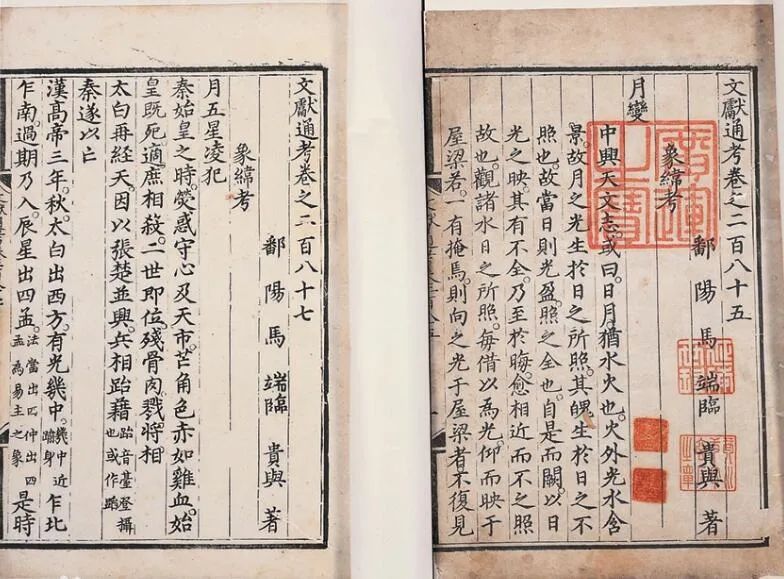 文獻通考卷之二百八十五
鄱陽馬端臨 貴與 著
象緯考
月變
中興天文志。或曰。日月猶水火也。火外光水含
景。故月之光生於日之所照。其魄生於日之不
照也。故當日則光盈。照之全也。自是而闕。以日
光之映。其有不全。乃至於晦。愈相近而不之照
故也。觀諸水日之所照。每借以為光。仰而映于
屋梁。若一有掩焉。則向之光于屋梁者。不復見
文獻通考卷之二百八十七
鄱陽馬端臨 貴與 著
象緯考
月五星凌犯
秦始皇之時。熒惑守心及天市。芒角色赤如雞血。始
皇既死。適庶相殺。二世即位。殘骨肉。戮將相
太白再經天。因以張楚並興。兵相跆藉 跆音臺登攝也或作蹈
秦遂以亡
漢高帝三年。秋。太白出西方。有光幾中。幾中近踰身 乍北
乍南。過期乃入。辰星出四孟。法當出四仲出四孟為易主之象 是時